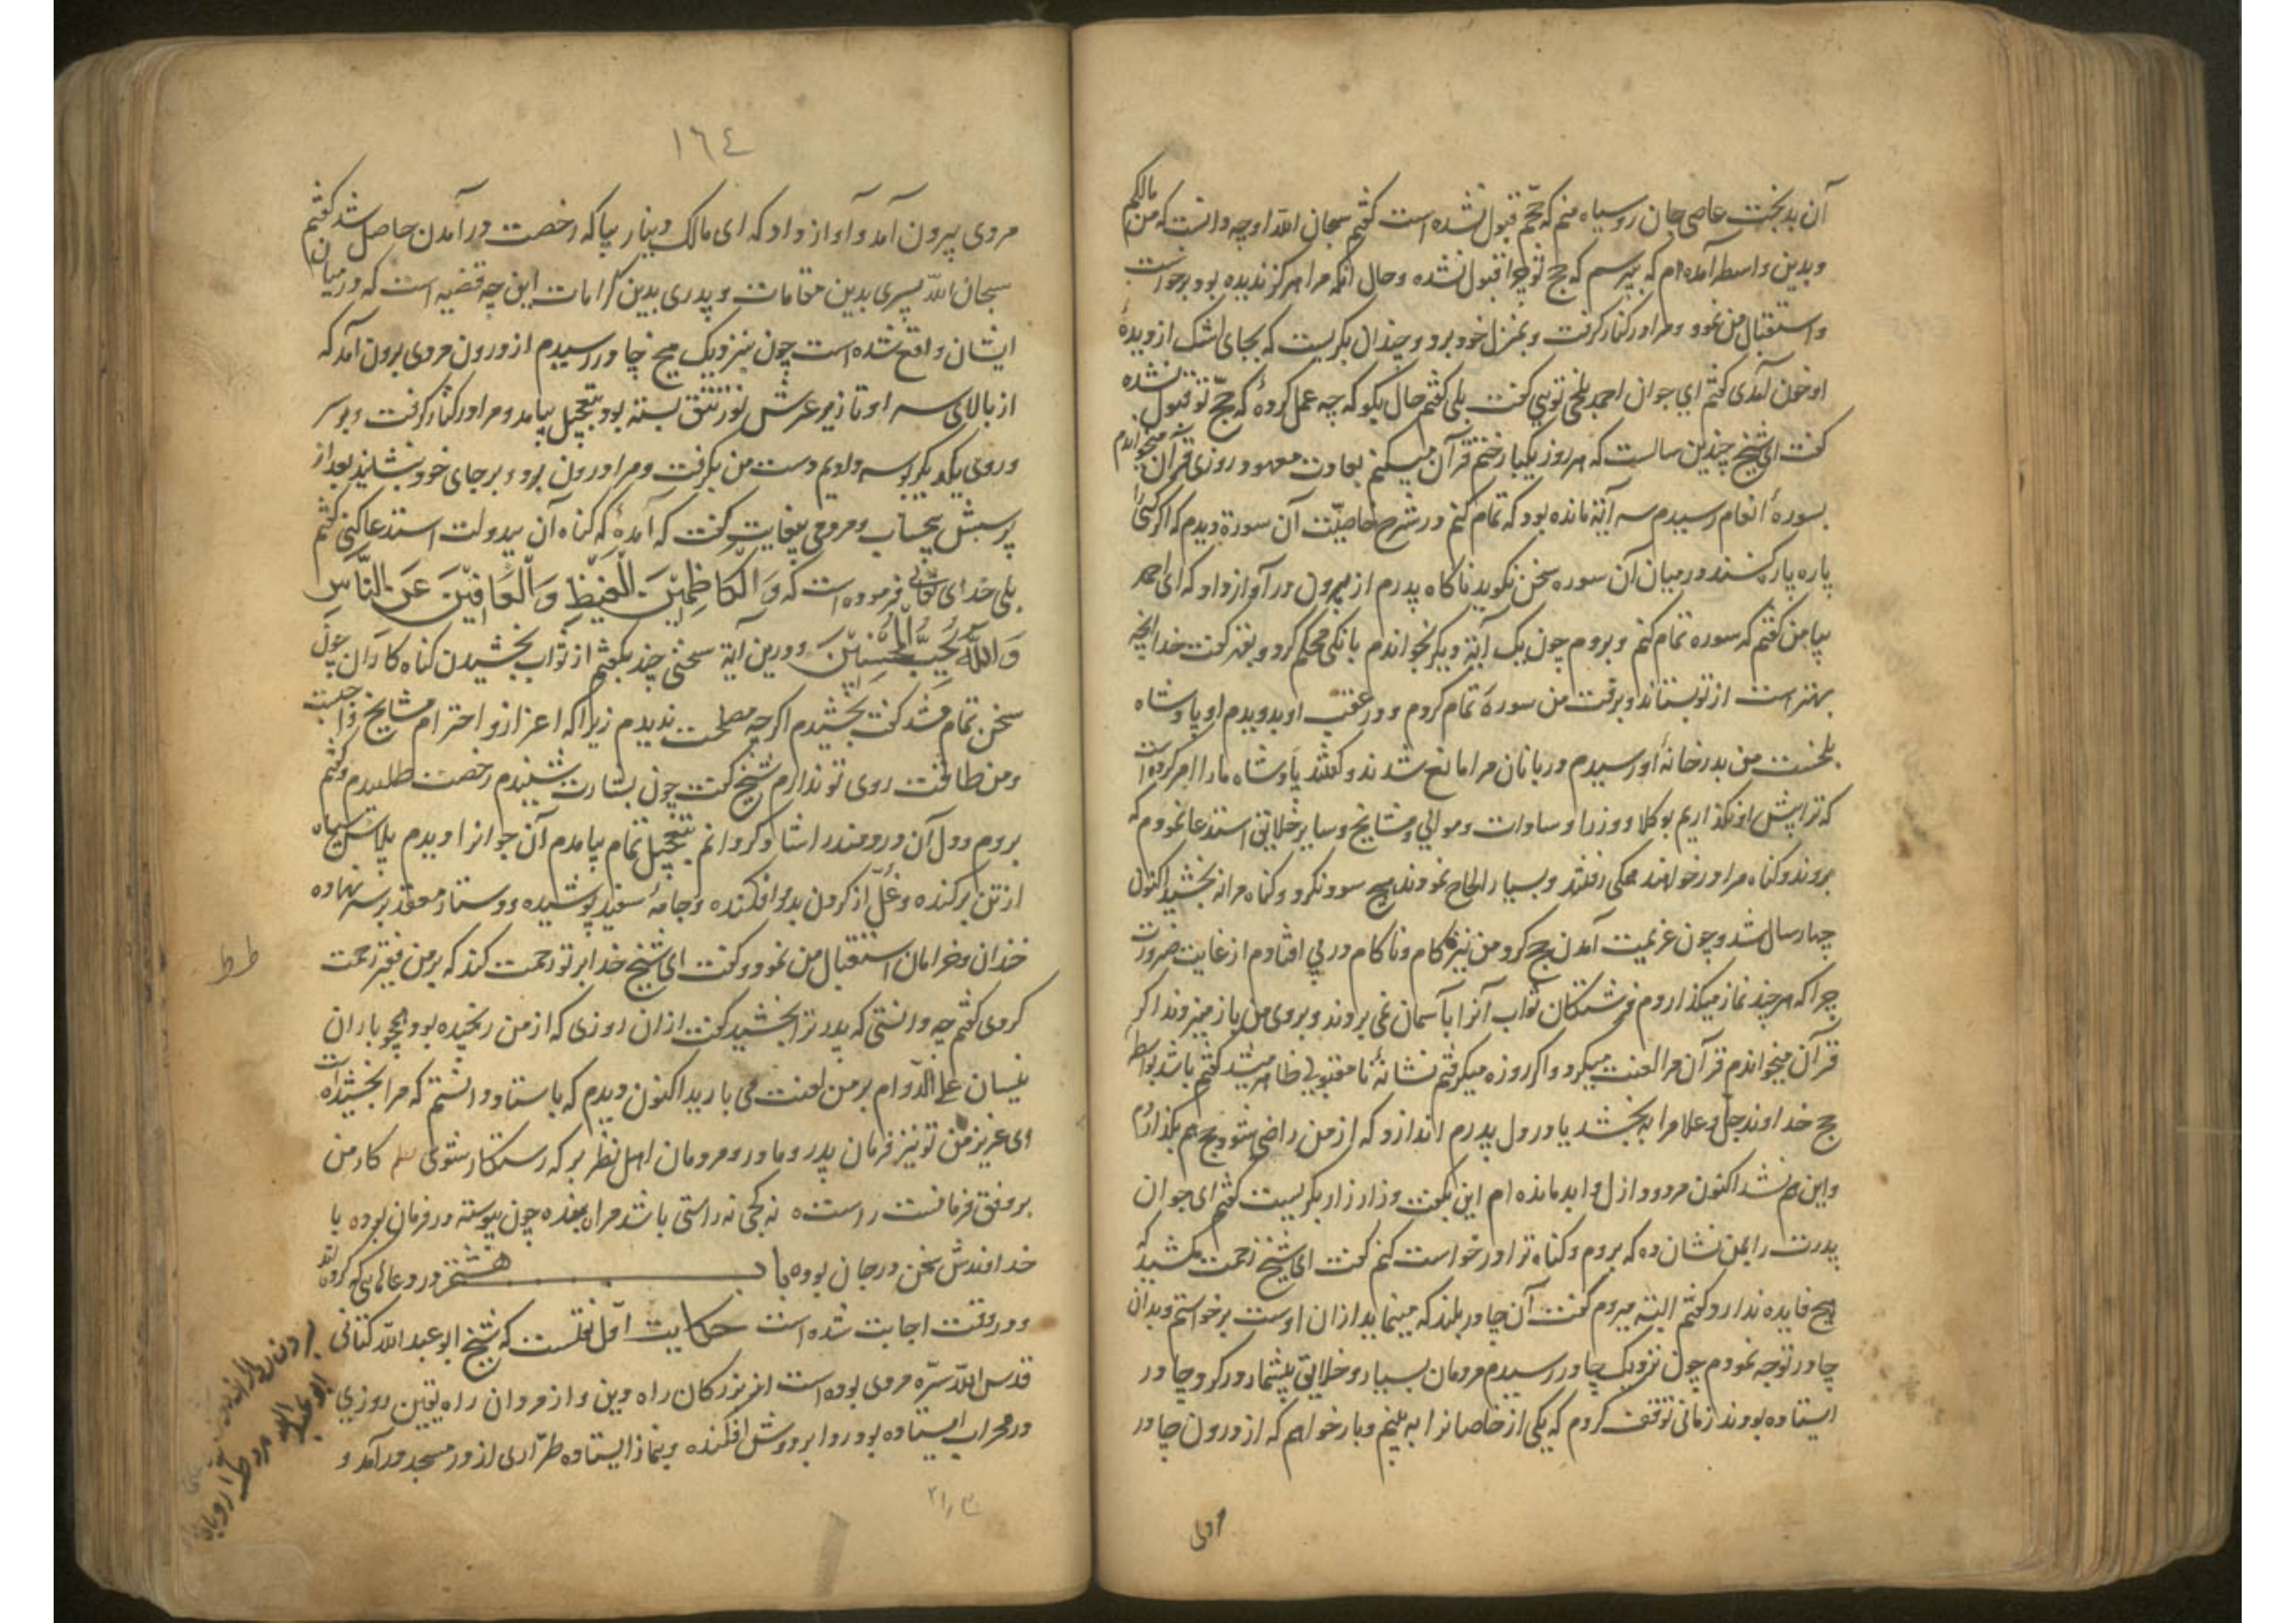 آن بدبخت عاصی جان روسیاه منم که حجّم قبول نشده است گفتم سبحان الله او چه دانست که من مالکم
و بدین واسطه آمده‌ام که بپرسم که حج تو چرا قبول نشده و حال آنکه مرا هرگز ندیده بود برخواست
و استقبال من نمود و مرا در کنار گرفت و بمنزل خود برد و چندان بگریست که بجای اشک از دیدۀ
او خون آمدی گفتم ای جوان احمد بلخی تویی گفت بلی گفتم حال بگو که چه عمل کردۀ که حجّ تو قبول نشده
گفت ای شیخ چندین سالست که هر روز یکبار ختم قرآن میکنم بعادت معهود روزی قرآن میخواندم
بسورۀ انعام رسیدم سه آیة مانده بود که تمام کنم در شرح خاصیّت آن سورة دیدم که اگر کسی را
پاره پاره کنند در میان آن سوره سخن نگوید ناگاه پدرم از بیرون در آواز داد که ای احمد
بیا من گفتم که سوره تمام کنم و بروم چون یک آیة دیگر بخواندم بانکی محکم کرد و بقهر گفت خدا آنچه
بهتر است از تو بستاند و برفت من سورۀ تمام کردم و در عقب او بدویدم او پادشاه
بلخست من بدرخانۀ او رسیدم دربانان مرا مانع شدند و گفتند پادشاه ما را امر کرده است
که ترا پیش او نگذاریم بوکلا و وزرا و سادات و موالی و مشایخ و سایر خلایق استدعا نمودم که
بروند و گناه مرا درخواهند همگی رفتند و بسیار الحاح نمودند هیچ سود نکرد و گناه مرا نه بخشید اکنون
چهار سال شد و چون عزیمت آمدن حج کرد من نیز کام و ناکام در پی افتادم از غایت ضرورت
چرا که هر چند نماز میگذاردم فرشتگان ثواب آنرا بآسمان نمی بردند و بروی من باز میزدند اگر
قرآن میخواندم قرآن مرا لعنت میکرد و اگر روزه میگرفتم نشانۀ نامقبولی ظاهر میشد گفتم باشد بواسطۀ
حج خداوند جلّ و علا مرا به بخشد یا در دل پدرم اندازد که از من راضی شود حج هم بگذاردم
و این هم نشد اکنون مردود ازل و ابد مانده ام این بگفت و زار زار بگریست گفتم ای جوان
پدرت را بمن نشان ده که بروم و گناه ترا درخواست کنم گفت ای شیخ زحمت مکشید که
هیچ فایده ندارد گفتم البته میروم گفت آن چادر بلند که مینماید از آن اوست برخواستم و بدان
چادر توجه نمودم چون نزدیک چادر رسیدم مردمان بسیار و خلایق بیشمار در گرد چادر
ایستاده بودند زمانی توقف کردم که یکی از خاصانرا به بینم و بار خواهم که از درون چادر
مردی
١٦٤
مردی بیرون آمد و آواز داد که ای مالک دینار بیا که رخصت درآمدن حاصل شد گفتم
سبحان الله پسری بدین مقامات و پدری بدین کرامات این چه قضیه است که در میان
ایشان واقع شده است چون بنزدیک میخ چادر رسیدم از درون مردی برون آمد که
از بالای سر او تا زیر عرش نور تتق بسته بود بتعجیل بیامد و مرا در کنار گرفت و بر سر
و روی یکدیگر بوسه دادیم دست من بگرفت و مرا درون برد و بر جای خود بنشاند بعد از
پرسش بیحساب و مردمی بیغایت گفت که آمدۀ که گناه آن بیدولت استدعا کنی گفتم
بلی خدای تعالی فرموده است که وَالْكَاظِمِيْنَ الْغَيْظَ وَالْعَافِيْنَ عَنِ النَّاسِ
وَاللّٰهُ يُحِبُّ الْمُحْسِنِيْنَ و درین آیة سخنی چند بگفتم از ثواب بخشیدن گناه کاران چون
سخن تمام شد گفت بخشیدم اگرچه مصلحت ندیدم زیرا که اعزاز و احترام مشایخ واجبست
و من طاقت روی تو ندارم شیخ گفت چون بشارت شنیدم رخصت طلبیدم و گفتم
بروم و دل آن دردمند را شاد گردانم بتعجیل تمام بیامدم آن جوانرا دیدم پلاس سیاه
از تن برکنده و غلّ از گردن بدر افکنده و جامۀ سفید پوشیده و دستار معقد بر سر نهاده
خندان و خرامان استقبال من نمود و گفت ای شیخ خدا بر تو رحمت کند که بر من فقیر رحمت
کردی گفتم چه دانستی که پدر ترا بخشید گفت از آن روزی که از من رنجیده بود همچو باران
نیسان علی الدّوام بر من لعنت می بارید اکنون دیدم که باستاد دانستم که مرا بخشیده است
ای عزیز من تو نیز فرمان پدر و مادر و مردمان اهل نظر بر که رستگار شوی کار من
بر وفق فرمانست راست نه کجی نه راستی باشد مرا بنده چون پیوسته در فرمان بود با
خداوندش سخن در جان بود باب هشتم در دعاهایی که کرده‌اند
و در وقت اجابت شده است حکایت اوّل نقلست که شیخ ابو عبدالله کتانی
قدس الله سرّه مردی بوده است از بزرکان راه دین و از مردان راه یقین روزی
در محراب ایستاده بود ردا بر دوش افکنده و بنماز ایستاده طرّاری از در مسجد درآمد و